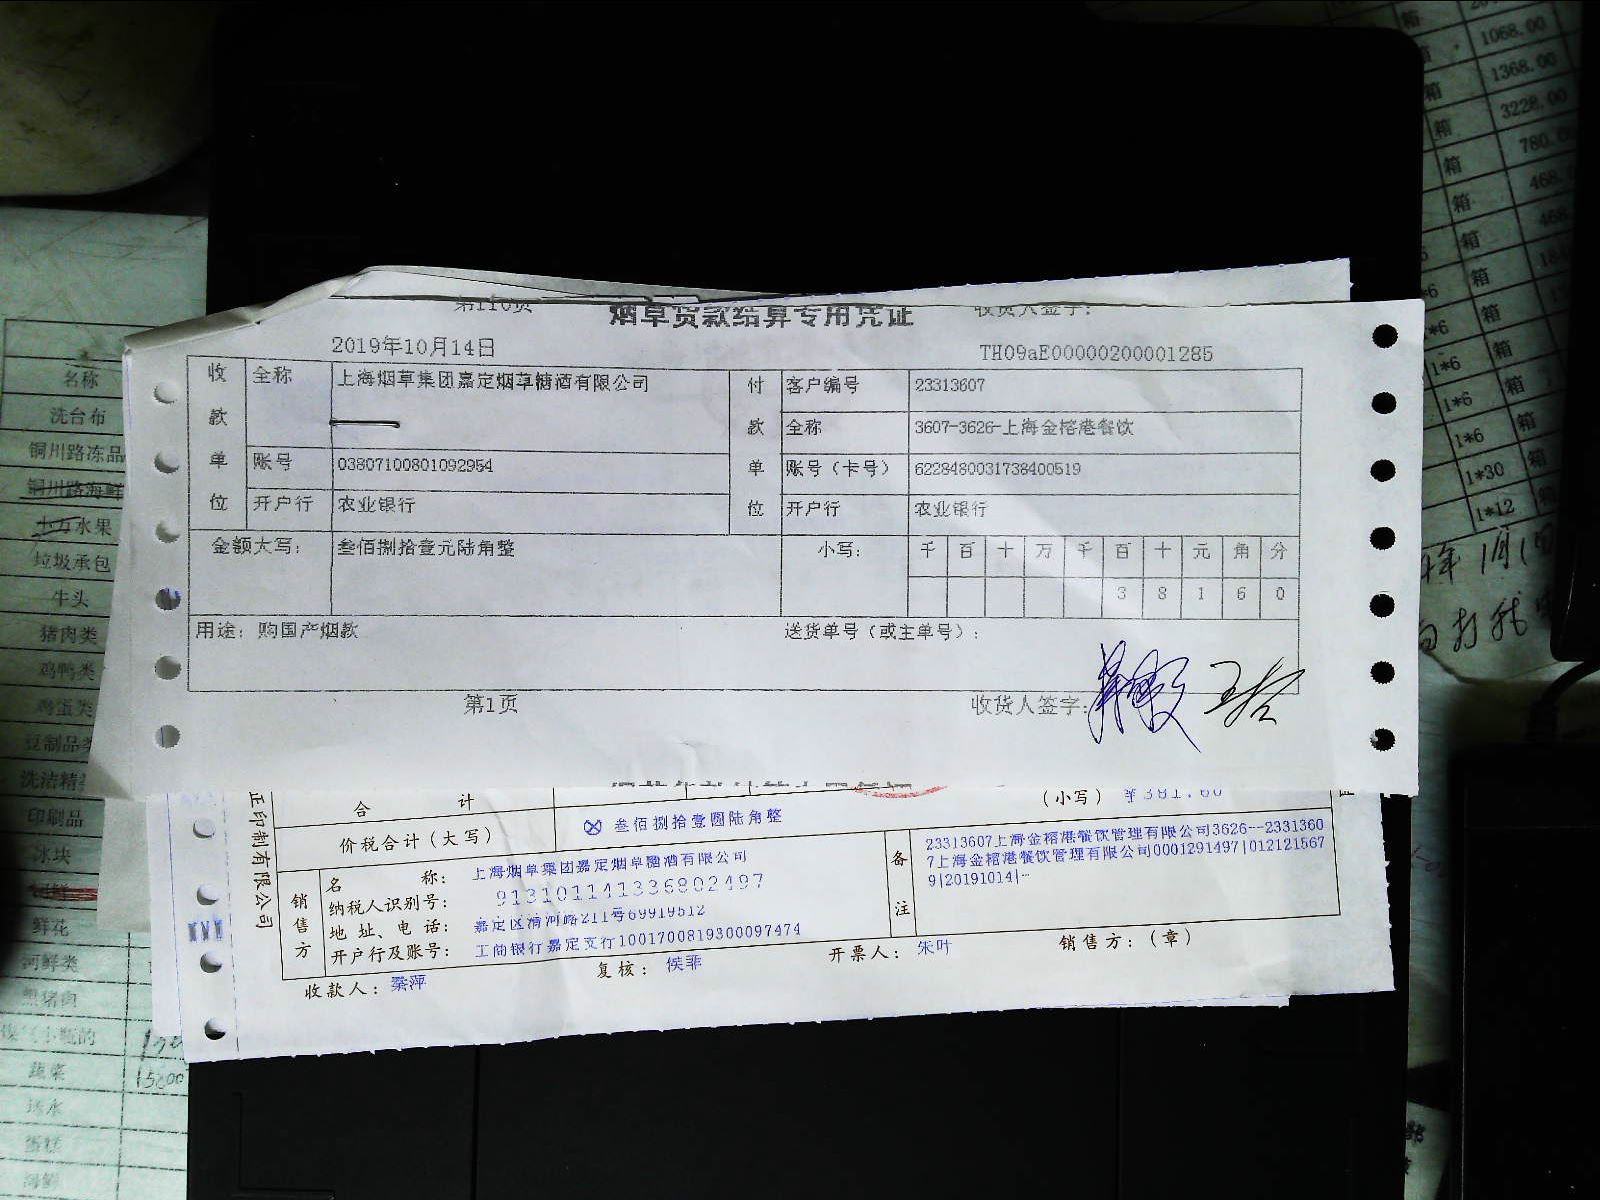 第110页
收货人签字:
烟草货款结算专用凭证
2019年10月14日
TH09aE00000200001285
收款单位
全称
上海烟草集团嘉定烟草糖酒有限公司
账号
03807100801092954
开户行
农业银行
付款单位
客户编号
23313607
全称
3607-3626-上海金榕港餐饮
账号(卡号)
6228480031738400519
开户行
农业银行
金额大写:
叁佰捌拾壹元陆角整
小写:
千 百 十 万 千 百 十 元 角 分
3 8 1 6 0
用途: 购国产烟款
送货单号(或主单号):
第1页
收货人签字:
合 计
(小写) ¥381.60
价税合计(大写)
叁佰捌拾壹圆陆角整
销售方
名 称: 上海烟草集团嘉定烟草糖酒有限公司
纳税人识别号: 913101141336802497
地 址、电 话: 嘉定区清河路211号69919512
开户行及账号: 工商银行嘉定支行1001700819300097474
备注
23313607上海金榕港餐饮管理有限公司3626--2331360
7上海金榕港餐饮管理有限公司0001291497|012121567
9|20191014|--
收款人: 梁萍
复核: 侯菲
开票人: 朱叶
销售方: (章)
正印制有限公司
名称
洗台布
铜川路冻品
铜川路海鲜
水果
垃圾承包
牛头
猪肉类
鸡鸭类
鸡蛋类
豆制品类
洗洁精
印刷品
冰块
鲜花
河鲜类
黑猪肉
蔬菜
15000
蛋糕
海鲜
箱 1068.00
箱 1368.00
箱 3228.00
箱 780.
箱 468.
箱 468
箱
箱
1*6 箱
1*6 箱
1*6 箱
1*6 箱
1*30 箱
1*12 箱
年1月1日